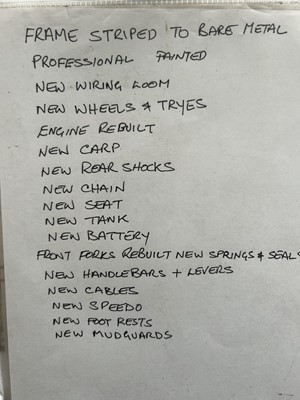 FRAME STRIPED TO BARE METAL
PROFESSIONAL PAINTED
NEW WIRING LOOM
NEW WHEELS & TRYES
ENGINE REBUILT
NEW CARP
NEW REAR SHOCKS
NEW CHAIN
NEW SEAT
NEW TANK
NEW BATTERY
FRONT FORKS REBUILT NEW SPRINGS & SEALS
NEW HANDLEBARS + LEVERS
NEW CABLES
NEW SPEEDO
NEW FOOT RESTS
NEW MUDGUARDS